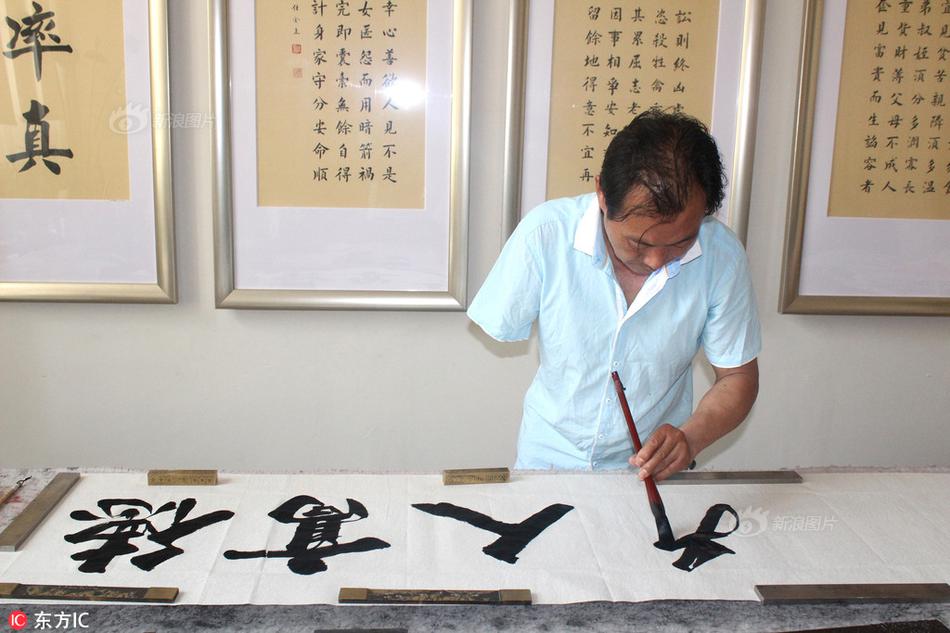 率真
幸心善欲人見不是
女匿怨而用暗箭禍
完即囊橐無餘自得
計身家守分安命順
訟則終凶處
恣殺牲禽
其累屈志老
因事相爭安知
留餘地得意不宜再
見貧苦親鄰須多溫
弟叔姪須分多潤寡長
重貲財薄父母不成人
見富貴而生諂容者
新浪图片
新浪图片
IC 东方IC